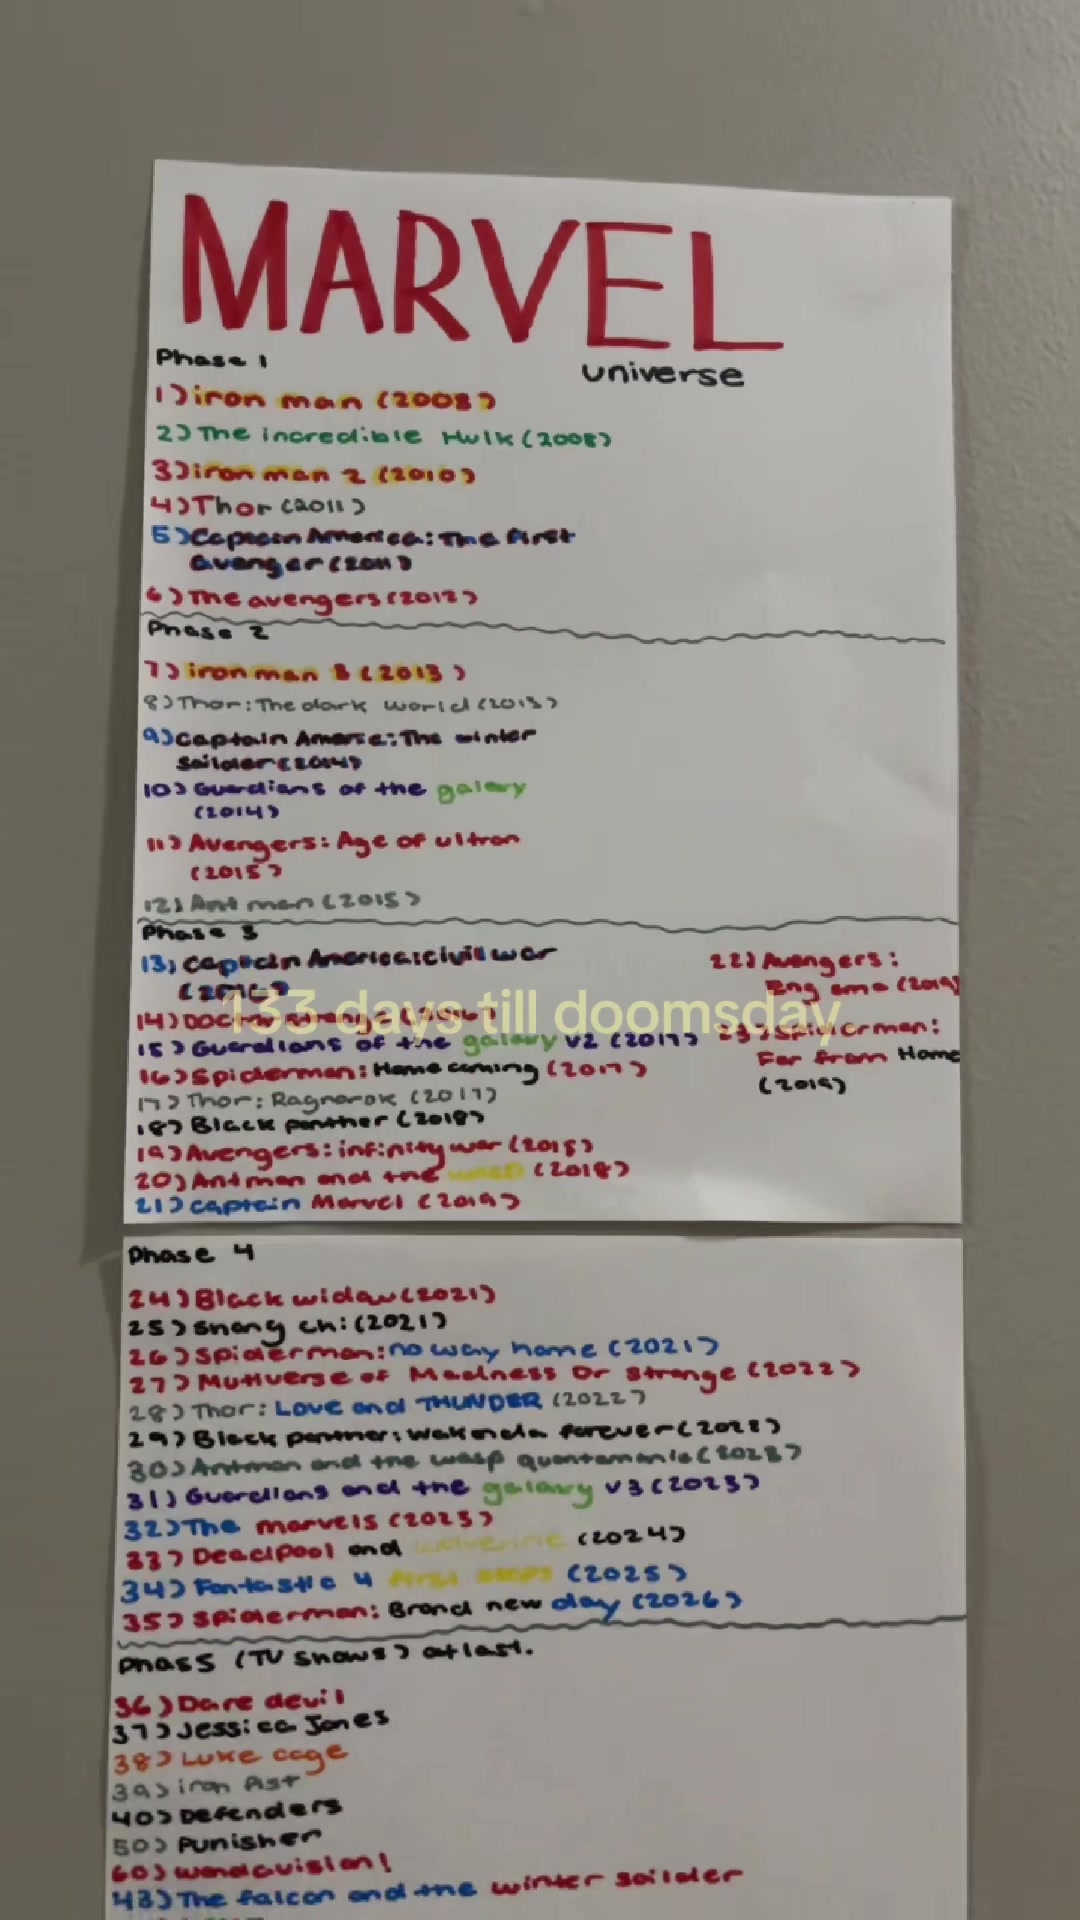 MARVEL
universe
Phase 1
1) iron man (2008)
2) The incredible Hulk (2008)
3) iron man 2 (2010)
4) Thor (2011)
5) Captain America: The first
avenger (2011)
6) The avengers (2012)
Phase 2
7) iron man 3 (2013)
8) Thor: The dark world (2013)
9) Captain America: The winter
soilder (2014)
10) Guardians of the galaxy
(2014)
11) Avengers: Age of ultron
(2015)
12) Ant man (2015)
Phase 3
13) Captain America: civil war
(2016)
14) Doctor strange (2016)
15) Guardians of the galaxy v2 (2017)
16) Spiderman: Homecoming (2017)
17) Thor: Ragnarok (2017)
18) Black panther (2018)
19) Avengers: infinity war (2018)
20) Antman and the wasp (2018)
21) captain Marvel (2019)
22) Avengers:
Eng ame (2019)
23) Spiderman:
Far from Home
(2019)
133 days till doomsday
Phase 4
24) Black widow (2021)
25) Shang chi (2021)
26) Spiderman: no way home (2021)
27) Mutiverse of Madness Dr strange (2022)
28) Thor: Love and THUNDER (2022)
29) Black panther: Wakanda forever (2022)
30) Antman and the wasp quantamania (2023)
31) Guardians and the galaxy v3 (2023)
32) The marvels (2023)
33) Deadpool and wolverine (2024)
34) Fantastic 4 first steps (2025)
35) Spiderman: Brand new day (2026)
Phas5 (TV shows) at last.
36) Dare devil
37) Jessica Jones
38) Luke cage
39) iron fist
40) Defenders
50) Punisher
60) wandavision!
43) The falcon and the winter soilder